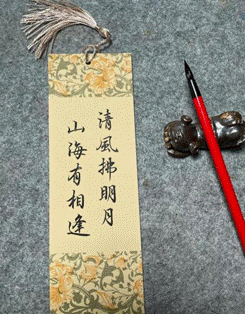 清風拂明月
山海有相逢